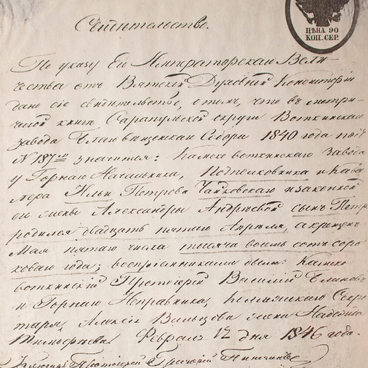 ЦѢНА 90
КОП. СЕР.
Свѣтительство.
По указу Его Императорскаго Вели-
чества отъ Вятской Духовной Консисторiи
дано сiе свидетельство, о томъ, что въ метри-
ческой книгѣ Сарапульской округи Воткинскаго
завода Благовещенскаго Собора 1840 года подъ
№ 187 значится: Камско воткинскаго Завода
у Горнаго Начальника, Подполковника и Кава-
лера Ильи Петрова Чайковскаго и законной
его жены Александры Андреевой сынъ Петръ
родился двадцать пятаго Апреля, а крещенъ
Мая пятаго числа тысяча восемь сотъ соро-
коваго года; воспрiемниками были: Камско
воткинскiй Протоiерей Василiй
и Горнаго Исправника,
Алексея Вальцова жена Надежда
Тимофеева Февраля 12 дня 1846 года.
Протоiерей